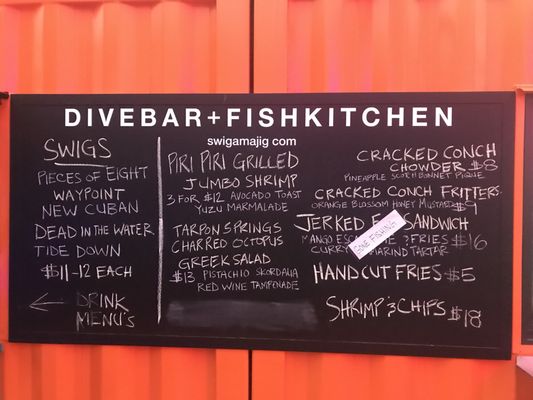 DIVEBAR+FISHKITCHEN
swigamajig com
SWIGS
PIECES OF EIGHT
WAYPOINT
NEW CUBAN
DEAD IN THE WATER
TIDE DOWN
$11-12 EACH
DRINK
MENU'S
PIRI PIRI GRILLED
JUMBO SHRIMP
3 FOR $12 AVOCADO TOAST
YUZU MARMALADE
TARPON SPRINGS
CHARRED OCTOPUS
GREEK SALAD
$13 PISTACHIO SKORDALIA
RED WINE TAMPENADE
CRACKED CONCH
CHOWDER $8
PINEAPPLE SCOTCH BONNET PIQUE
CRACKED CONCH FRITTERS
ORANGE BLOSSOM HONEY MUSTARD $9
JERKED SANDWICH
MANGO & FRIES $16
CURRY TARTAR
GONE FISHING
HAND CUT FRIES $5
SHRIMP & CHIPS $18